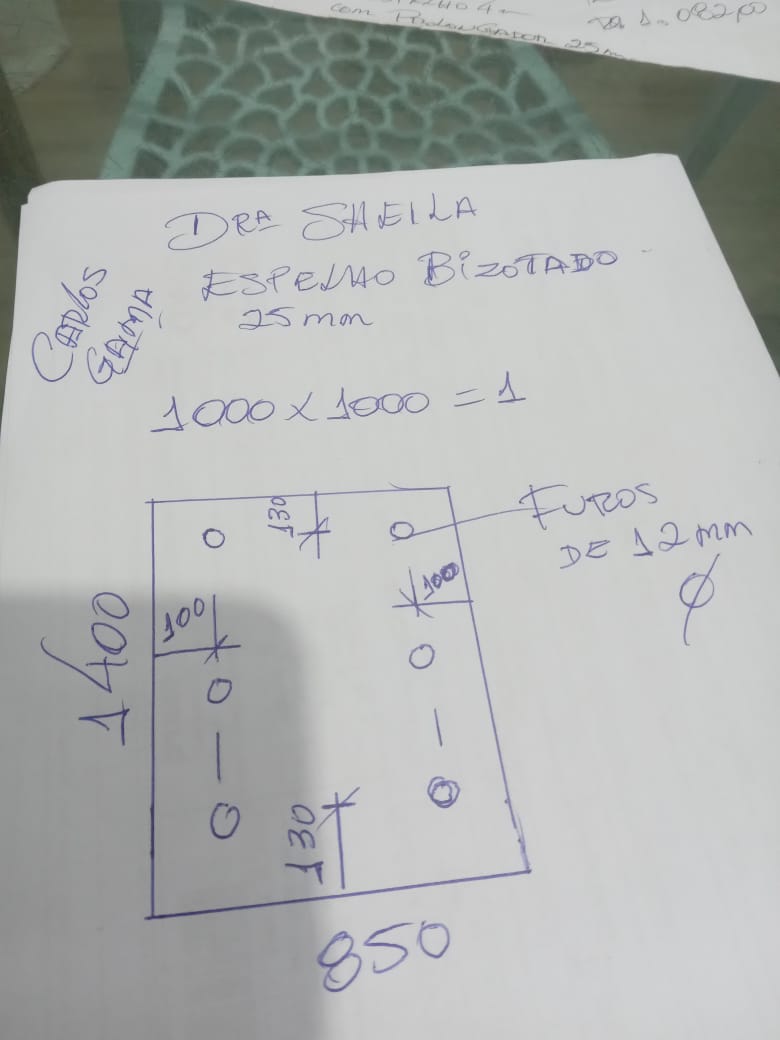 com
25m
DRA SHEILA
ESPELHO BIZOTADO
25mm
CARLOS
GAMA
1000 x 1000 = 1
130
FUROS
DE 12mm
Ø
100
100
1400
130
850